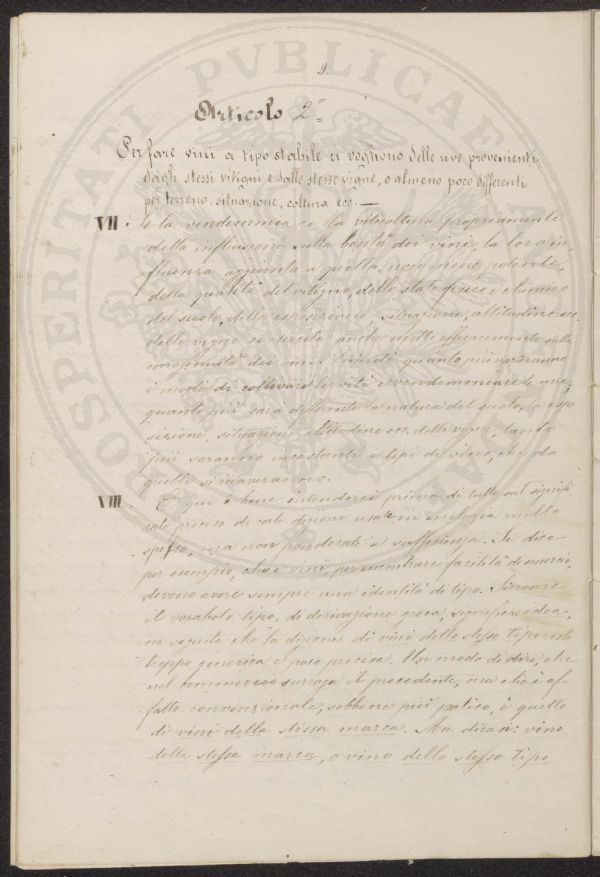 9.
Articolo 2º
Per fare vini a tipo stabile ci vogliono delle uve provenienti
dagli stessi vitigni e dalle stesse vigne, o almeno poco differenti
per terreno, situazione, coltura ecc. —
VII. Se la vendemmia e la viticoltura propriamente
detta influiscono sulla bontà dei vini, la loro in
fluenza aggiunta a quella, non meno potente,
della qualità del vitigno, dello stato fisico e chimico
del suolo, della esposizione, situazione, altitudine ecc.
delle vigne si esercita anche molto efficacemente sulla
dei vini. Quindi quanto più varieranno
i modi di coltivare le viti e vendemmiare le uve,
quanto più sarà differente la natura del suolo, la espo
sizione, situazione, altitudine ecc. delle vigne, tanto
più saranno incostanti i tipi di vino, che da
quelli si ricaveranno.
VIII. E qui è bene intenderci prima di tutto sul signifi
cato preciso di certe dizioni usate in enologia molto
spesso, ma non ponderate a sufficienza. Si dice
per esempio, che i vini, per incontrare facilità di smercio,
devono avere sempre una identità di tipo. Siccome
il vocabolo tipo, di derivazione greca, significa idea,
ne seguita che la dizione di vini dello stesso tipo
troppo generica e poco precisa. Un modo di dire, che
nel commercio surroga il precedente, ma che è af
fatto convenzionale, sebbene più pratico, è quello
di vini della stessa marca. Ma dirasi: vino
della stessa marca, o vino dello stesso tipo
PROSPERITATI PVBLICAE